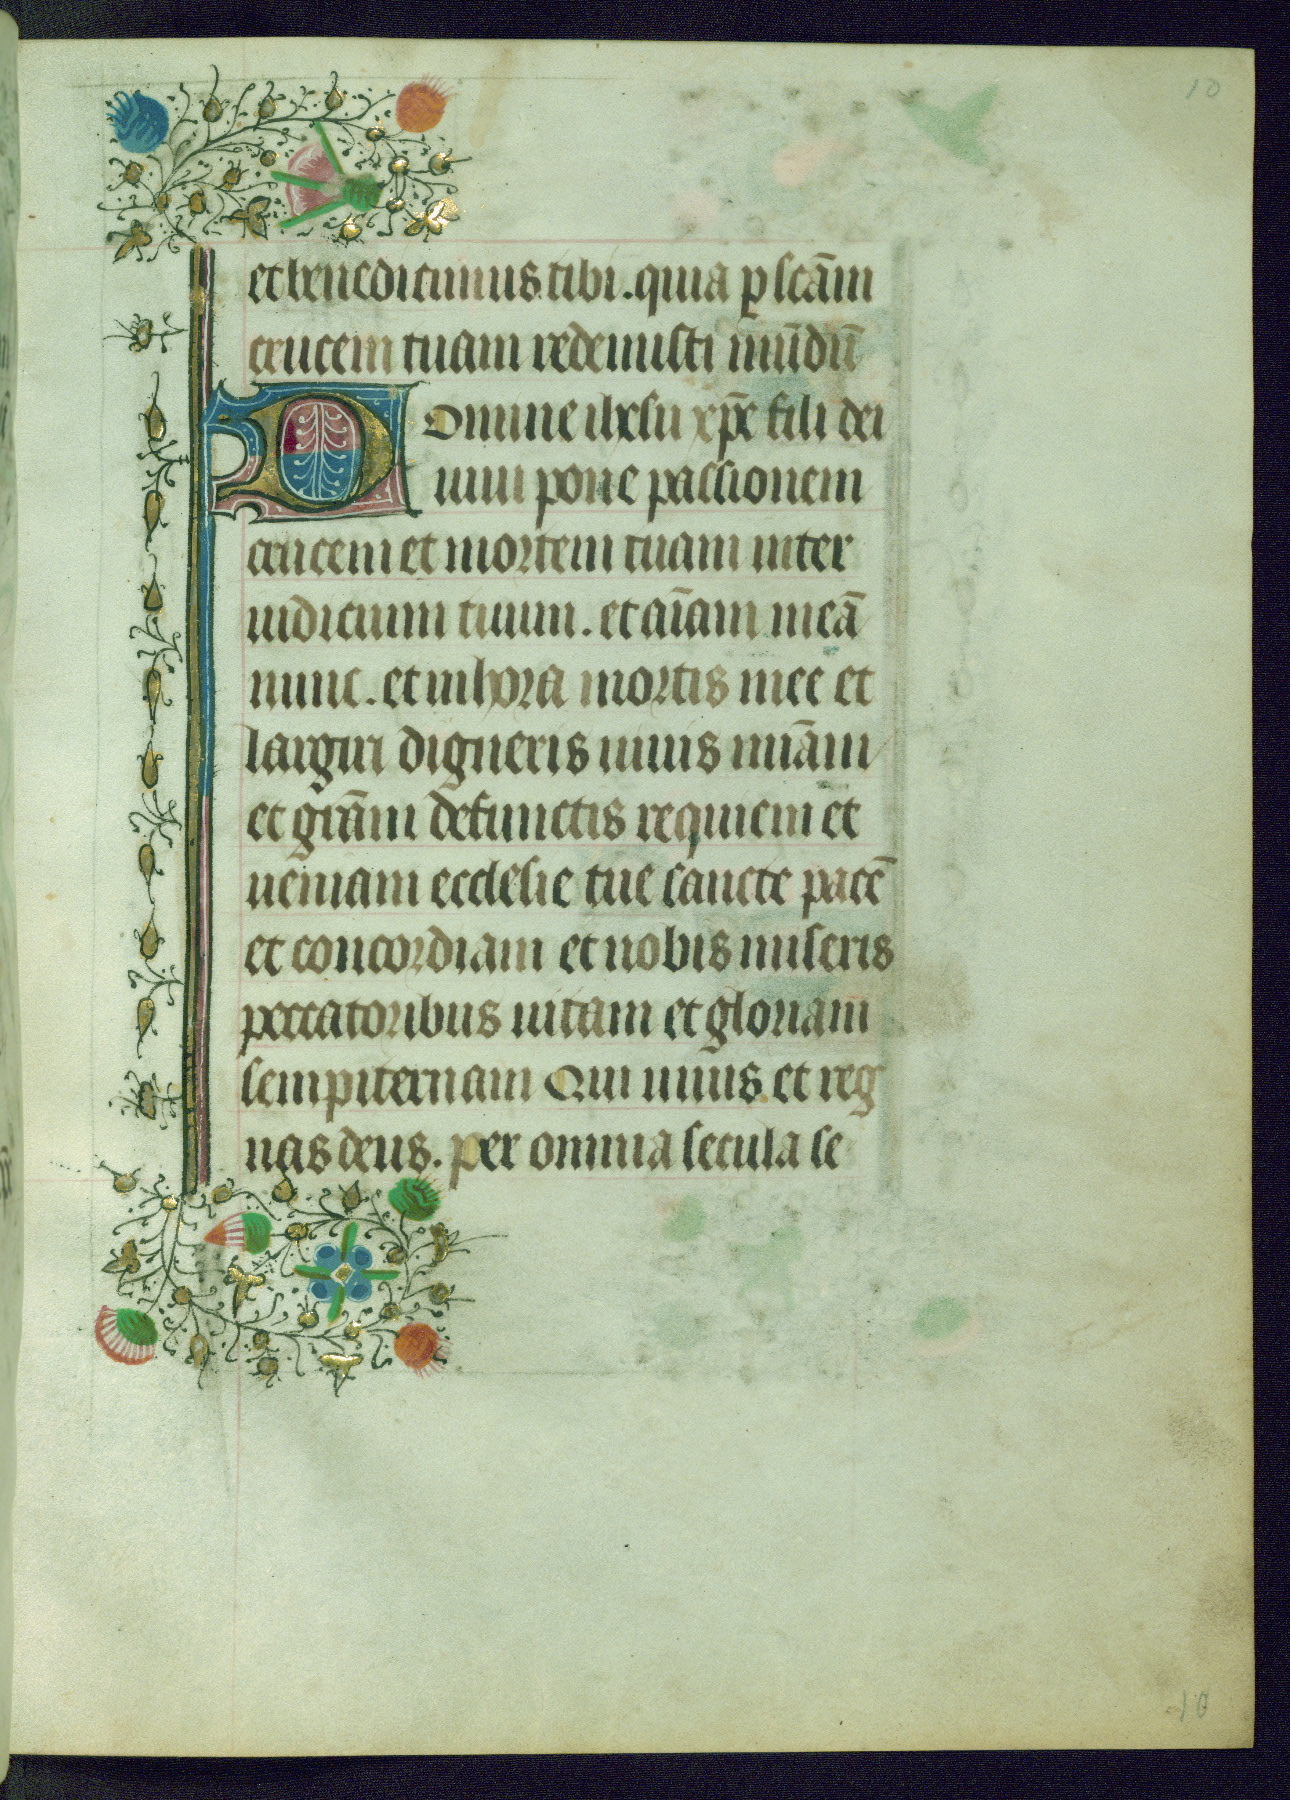 10
et benedicimus tibi. quia ꝑ scãm
crucem tuam redemisti mũdũ
Domine ihesu xp̃e fili dei
uiui pone passionem
crucem et mortem tuam inter
iudicium tuum. et aĩam meã
nunc. et in hora mortis mee et
largiri digneris uiuis miãm
et grãm defunctis requiem et
ueniam ecclesie tue sancte pacẽ
et concordiam et nobis miseris
peccatoribus uitam et gloriam
sempiternam Qui uiuis et reg
nas deus. per omnia secula se
10